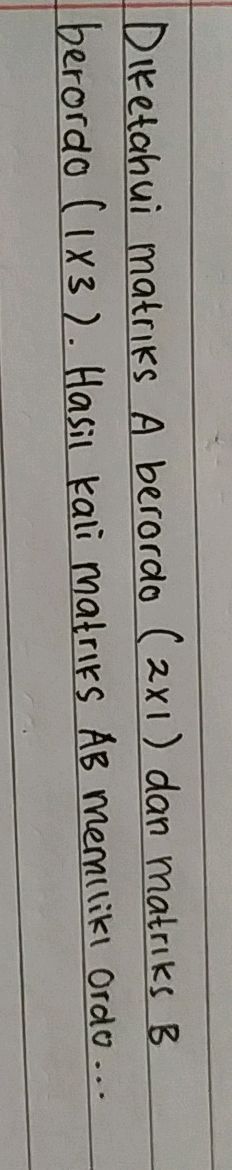 Diketahui matriks A berordo (2x1) dan matriks B
berordo (1x3). Hasil kali matriks AB memiliki ordo...